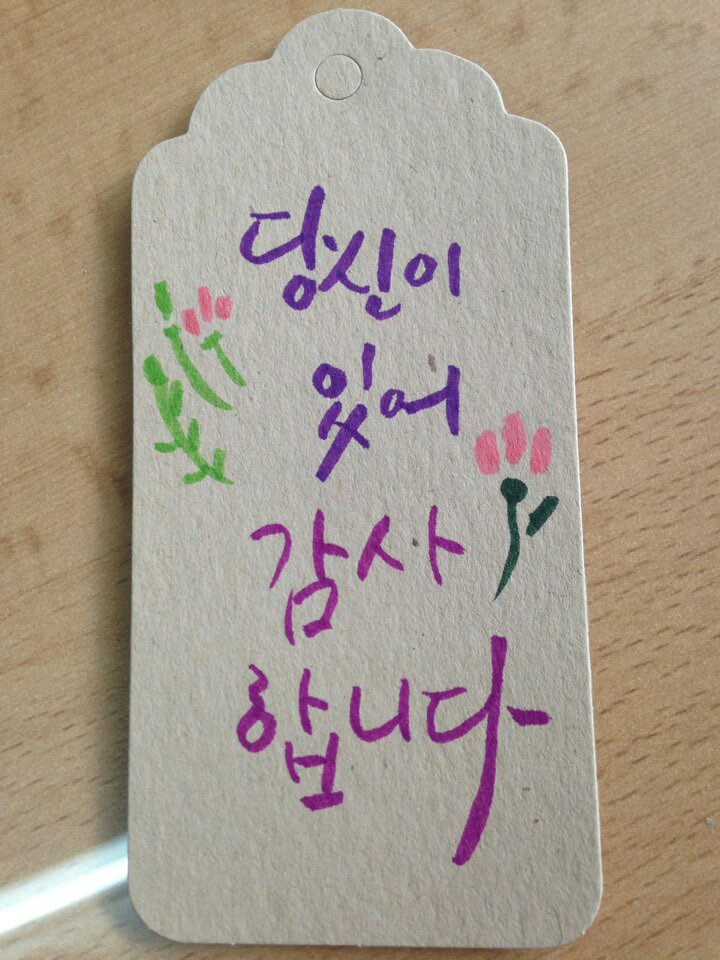 당신이
있어
감사
합니다